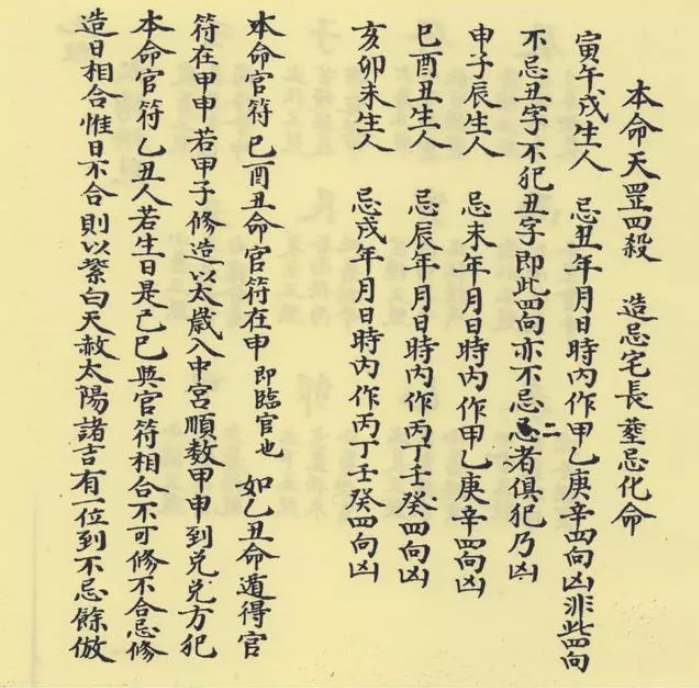 本命天罡四殺　造忌宅長塟忌化命
寅午戌生人　忌丑年月日時內作甲乙庚辛四向凶非此四向
不忌丑字不犯丑字即此四向亦不忌二忌者俱犯乃凶
申子辰生人　忌未年月日時內作甲乙庚辛四向凶
巳酉丑生人　忌辰年月日時內作丙丁壬癸四向凶
亥卯未生人　忌戌年月日時內作丙丁壬癸四向凶
本命官符　巳酉丑命官符在申即臨官也　如乙丑命遁得官
符在甲申若甲子修造以太歲入中宮順数甲申到兌兌方犯
本命官符乙丑人若生日是己巳與官符相合不可修不合忌修
造日相合惟日不合則以紫白天赦太陽諸吉有一位到不忌餘倣